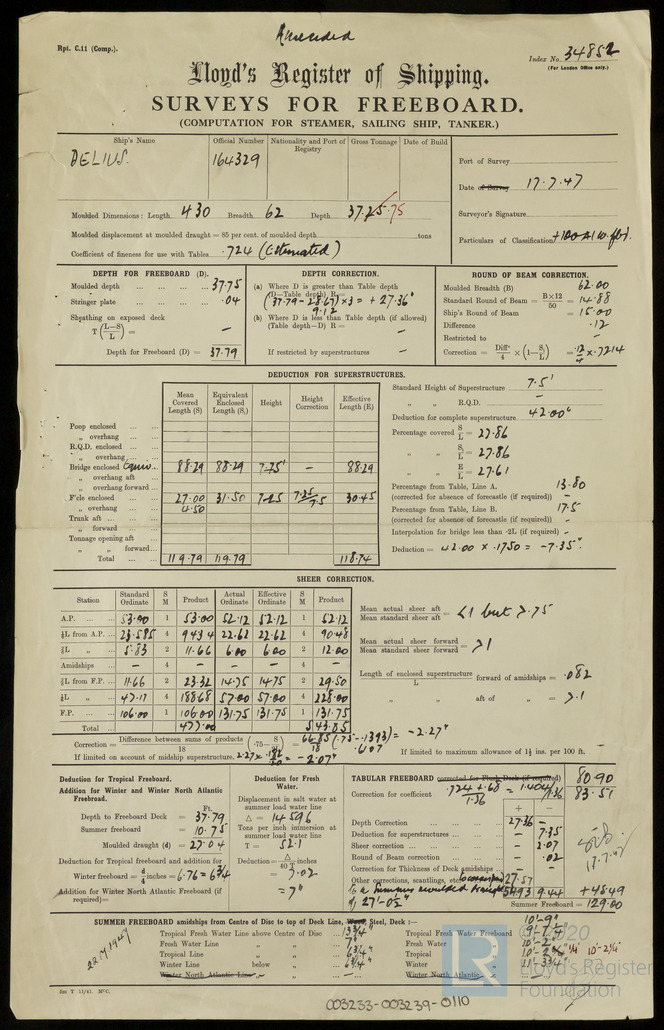 Amended
Rpt. C.11 (Comp.).
Index No. 34852
(For London Office only.)
Lloyd's Register of Shipping.
SURVEYS FOR FREEBOARD.
(COMPUTATION FOR STEAMER, SAILING SHIP, TANKER.)
Ship's Name Official Number Nationality and Port of Registry Gross Tonnage Date of Build
DELIUS. 164329
Port of Survey
Date of Survey 17.7.47
Surveyor's Signature
Particulars of Classification +100 A1 w. fbd.
Moulded Dimensions: Length 430 Breadth 62 Depth 37.25 .75
Moulded displacement at moulded draught = 85 per cent. of moulded depth tons
Coefficient of fineness for use with Tables .724 (Estimated)
DEPTH FOR FREEBOARD (D).
Moulded depth ... 37.75
Stringer plate ... .04
Sheathing on exposed deck
T (L—S / L) = —
Depth for Freeboard (D) = 37.79
DEPTH CORRECTION.
(a) Where D is greater than Table depth
(D—Table depth) R=
(37.79 - 28.67) x 3 = + 27.36"
9.12
(b) Where D is less than Table depth (if allowed)
(Table depth—D) R = —
If restricted by superstructures —
ROUND OF BEAM CORRECTION.
Moulded Breadth (B) 62.00
Standard Round of Beam = B×12 / 50 = 14.88
Ship's Round of Beam = 15.00
Difference .12
Restricted to —
Correction = Diffce / 4 × (1— S₁ / L) = .12 / 4 x .7214
DEDUCTION FOR SUPERSTRUCTURES.
Mean Covered Length (S) Equivalent Enclosed Length (S₁) Height Height Correction Effective Length (E)
Poop enclosed
„ overhang
R.Q.D. enclosed
„ overhang
Bridge enclosed Equiv. 88.29 88.29 7.75' — 88.29
„ overhang aft
„ overhang forward
F'cle enclosed 27.00 31.50 7.25 7.25/7.5 30.45
„ overhang 4.50
Trunk aft
„ forward
Tonnage opening aft
„ „ forward
Total 119.79 119.79 118.74
Standard Height of Superstructure 7.5'
„ „ R.Q.D. —
Deduction for complete superstructure 42.00"
Percentage covered S/L = 27.86
„ „ S₁/L = 27.86
„ „ E/L = 27.61
Percentage from Table, Line A. 13.80
(corrected for absence of forecastle (if required)) —
Percentage from Table, Line B. 17.5
(corrected for absence of forecastle (if required)) —
Interpolation for bridge less than ·2L (if required) —
Deduction = 42.00 x .1750 = -7.35"
SHEER CORRECTION.
Station Standard Ordinate S M Product Actual Ordinate Effective Ordinate S M Product
A.P. 53.00 1 53.00 52.12 52.12 1 52.12
⅙L from A.P. 23.585 4 94.34 22.62 22.62 4 90.48
⅓L „ 5.83 2 11.66 6.00 6.00 2 12.00
Amidships — 4 — — — 4 —
⅓L from F.P. 11.66 2 23.32 14.75 14.75 2 29.50
⅙L „ 47.17 4 188.68 57.00 57.00 4 228.00
F.P. 106.00 1 106.00 131.75 131.75 1 131.75
Total 477.00 543.85
Mean actual sheer aft / Mean standard sheer aft = <1 but >.75
Mean actual sheer forward / Mean standard sheer forward = >1
Length of enclosed superstructure / L forward of amidships = .082
„ aft of „ = >.1
Correction = Difference between sums of products / 18 (·75— S / 2L) = 66.85 / 18 (.75 - .1393) = -2.27"
.607
If limited on account of midship superstructure. = -2.07"
If limited to maximum allowance of 1½ ins. per 100 ft. —
Deduction for Tropical Freeboard.
Addition for Winter and Winter North Atlantic Freeboard.
Ft.
Depth to Freeboard Deck = 37.79
Summer freeboard = 10.75
Moulded draught (d) = 27.04
Deduction for Tropical freeboard and addition for
Winter freeboard = d/4 inches = 6.76 = 6¾
Addition for Winter North Atlantic Freeboard (if required)=
Deduction for Fresh Water.
Displacement in salt water at summer load water line
Δ = 14596
Tons per inch immersion at summer load water line
T = 52.1
Deduction = Δ / 40 T inches
= 7.02
= 7"
TABULAR FREEBOARD corrected for Flush Deck (if required) 80.90
Correction for coefficient .724+.68 / 1.36 = 1.404 / 1.36 83.51
+ —
Depth Correction 27.36 —
Deduction for superstructures — 7.35
Sheer correction — 2.07
Round of Beam correction — .02
Correction for Thickness of Deck amidships —
Other corrections, scantlings, etc. (to correspond 27.57
to a summer moulded draught 54.93 9.44 +45.49
of 27'-0½"
Summer Freeboard = 129.00
17.7.47
22 JY 1947
SUMMER FREEBOARD amidships from Centre of Disc to top of Deck Line, Wood, Steel, Deck:— 10'-9"
Tropical Fresh Water Line above Centre of Disc 13¾" Tropical Fresh Water Freeboard 9'-7¼"
Fresh Water Line „ „ 7" Fresh Water „ 10'-2"
Tropical Line „ „ 6¾" Tropical „ 10'-2¼" 10'-2¼"
Winter Line below „ „ 6¾" Winter „ 11'-3¾"
Winter North Atlantic Line „ „ — Winter North Atlantic „ —
5m T 12/41. McC.
003233-003239-0110
LR
© 2020
Lloyd's Register
Foundation